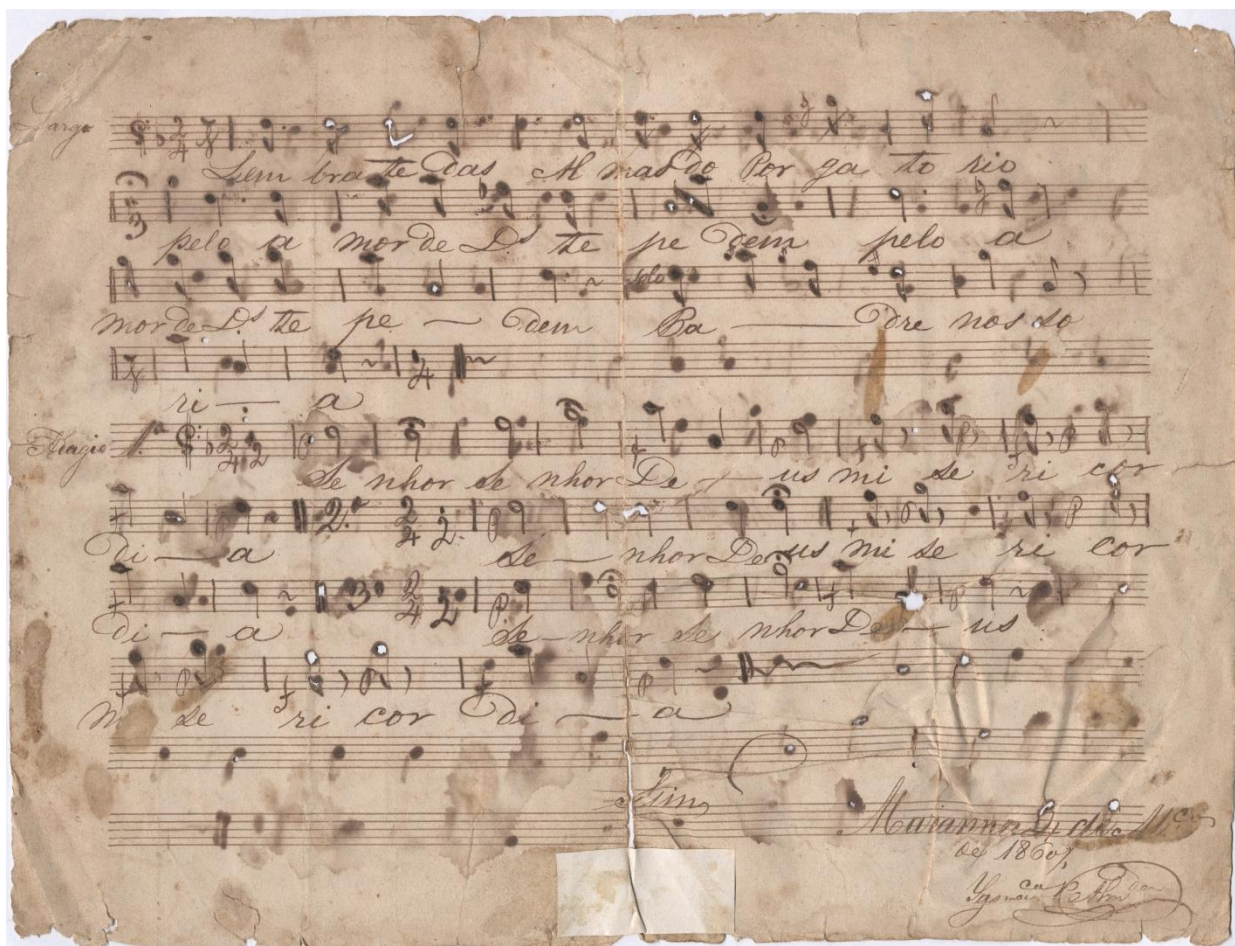 Largo
Lem bra te das Al mas do Por ga to rio
pelo a mor de D.s te pe dem pelo a
mor de D.s te pe — dem Pa — dre nos so
solo
ri — a
Adagio 1.ª
Se nhor se nhor De — us mi se ri cor
di — a 2.ª Se — nhor De us mi se ri cor
di — a 3ª Se — nhor se nhor De — us
se ri cor di — a
Fim
Marianna de M.ço
de 1860